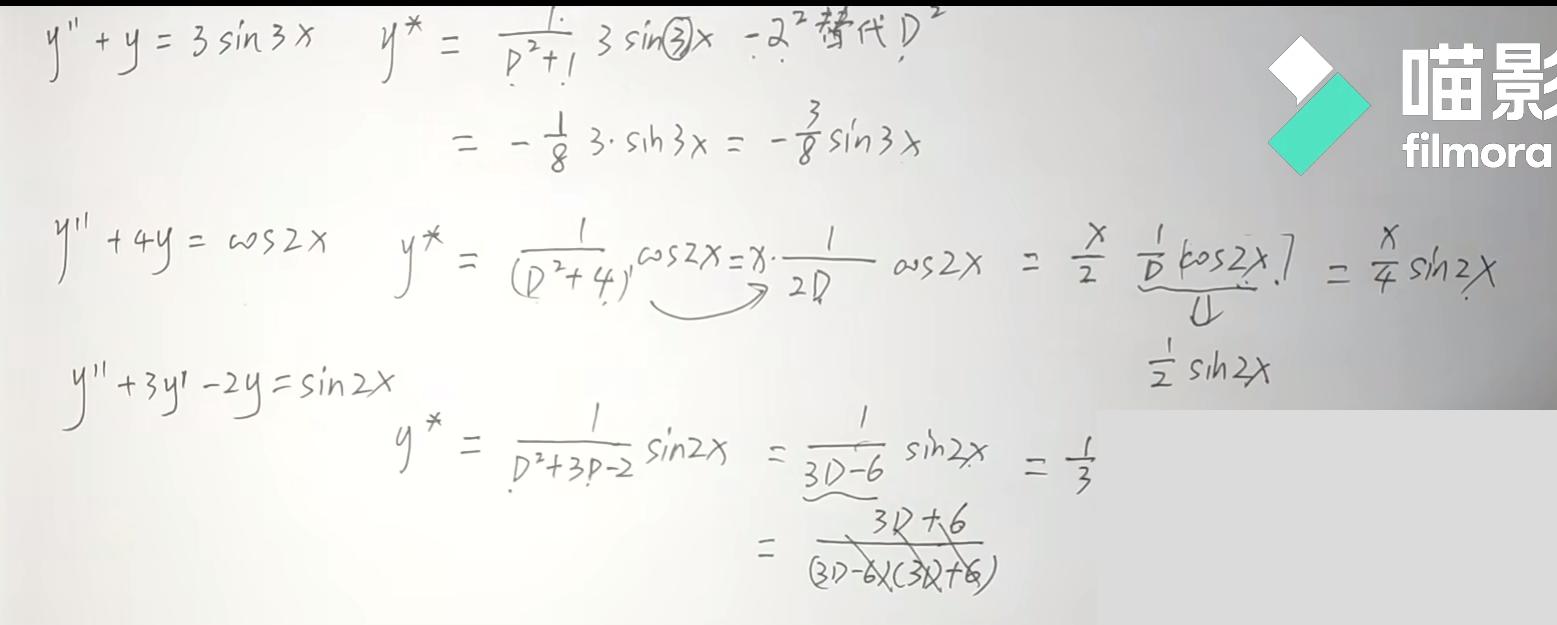 y'' + y = 3 sin 3x   y* = 1/(D²+1) 3 sin③x   -2² 替代 D²
= - 1/8 3· sin 3x = - 3/8 sin 3x
喵影
filmora
y'' + 4y = cos 2x   y* = 1/(D²+4) cos 2x = x· 1/(2D) cos 2x = x/2 1/D [cos 2x] = x/4 sin 2x
⇓
1/2 sin 2x
y'' + 3y' - 2y = sin 2x
y* = 1/(D²+3D-2) sin 2x = 1/(3D-6) sin 2x = 1/3
= (3D+6)/((3D-6)(3D+6))